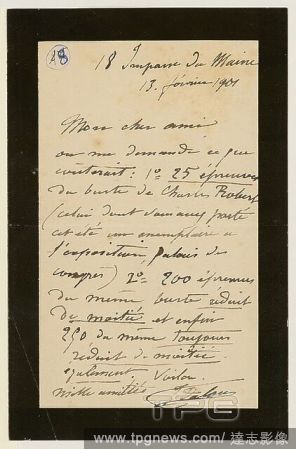 18
18 Impasse du Maine
13. février 1901
Mon cher ami
on me demande ce que
couterait: 1º 25 épreuves
du buste de Charles Robert
(celui dont
cet été un exemplaire a
l'exposition, Palais des
congrès) 2º 200 épreuves
du même buste réduit
de moitié et enfin
250 du même toujours
réduit de moitié
egalement. Voilà
mille amitiés
TPG
www.tpgnews.com / 達志影像